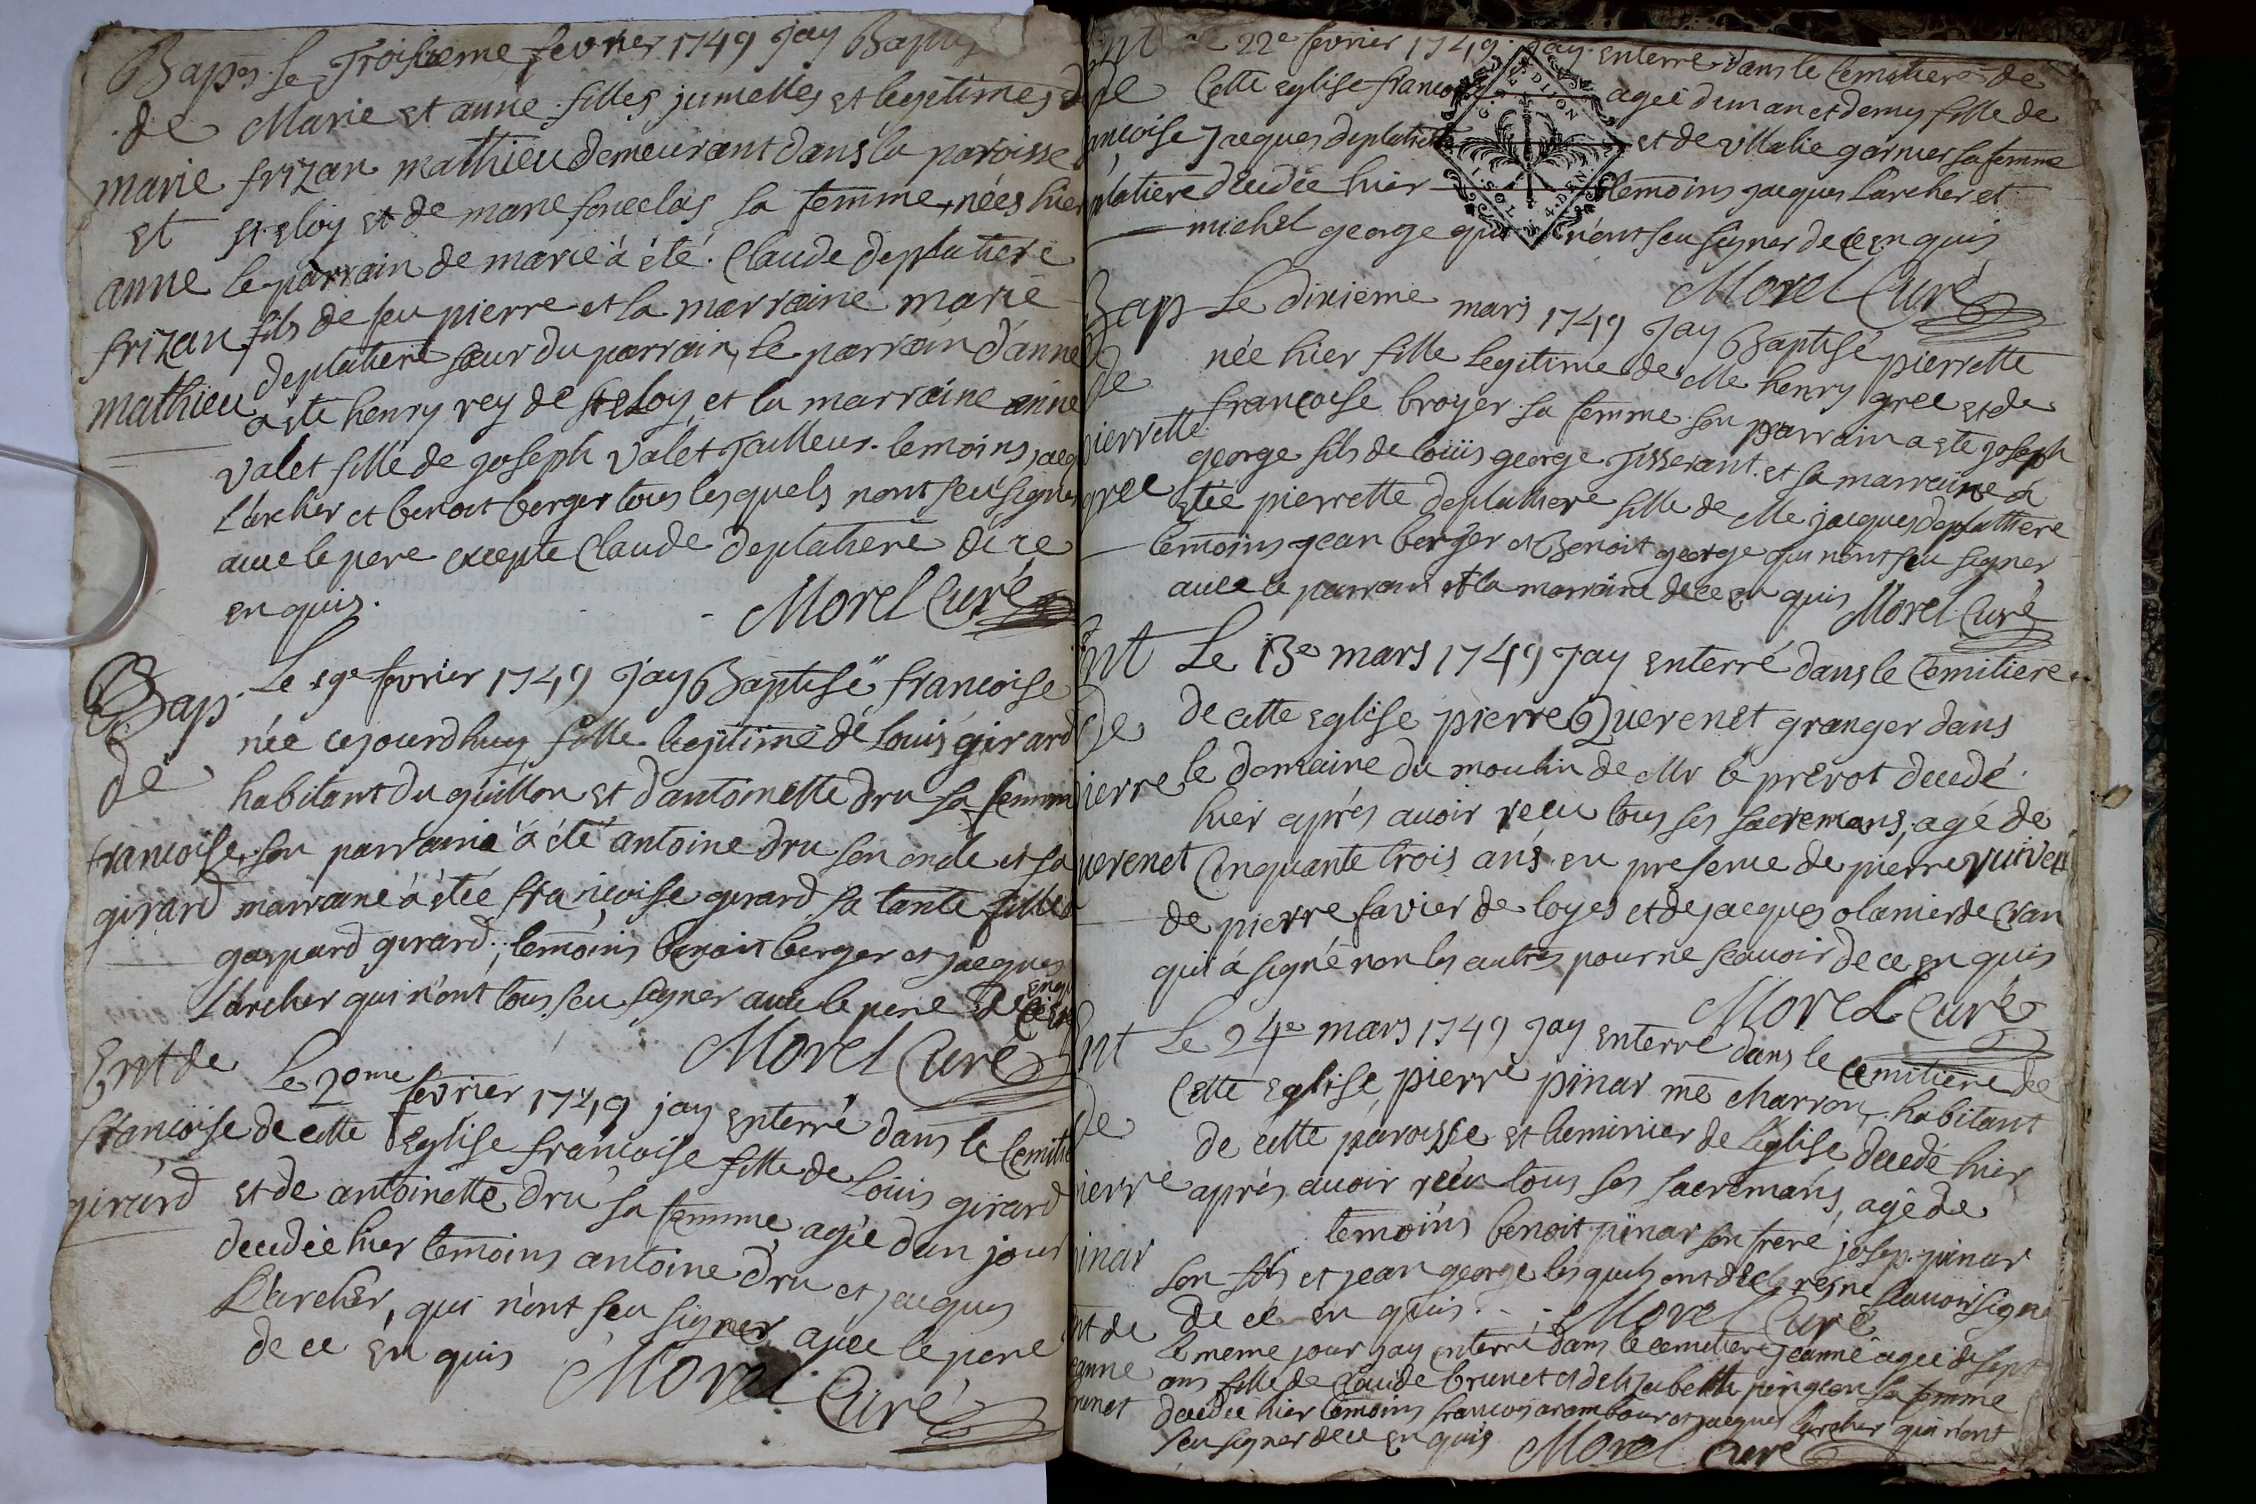 Bap. Le Troisieme fevrier 1749 Jay Bapti
de Marie et anne filles jumelles et legitimes
marie frizan mathieu demeurant dans la paroisse
et st eloy et de marie foneclas sa femme, nées hier
anne le parrain de marie à été Claude deplatiere
frizan fils de feu pierre et la marraine marie
mathieu deplatiere soeur du parrain, le parrain d'anne
à ete henry rey de st eloy et la marraine anne
valet fille de joseph valet Tailleur. temoins jacq
Larcher et benoit berger tous lesquels nont seu signer
avec le pere excepte Claude deplatiere de ce
enquis.
Morel Curé
Bap. Le 19e fevrier 1749 Jay Baptisé francoise
de née cejourdhuy fille legitime de Louis girard
habitant du guillon et dantoinette dru sa femme
francoise, son parraine à été antoine dru son oncle et sa
girard marraine à étée francoise girard sa tante fille
gaspard girard, temoins benoit berger et jacques
Larcher qui n'ont tous seu signer avec le pere de ce
enqu
Morel Curé
Ent de Le 20me fevrier 1749 jay enterré dans le Cemitie
francoise de cette Eglise francoise fille de Louis girard
girard et de antoinette dru sa femme agée dun jour
decedée hier temoins antoine dru et jacques
Larcher, qui n'ont seu signer avec le pere
de ce en quis
Morel Curé
22e fevrier 1749. Jay enterré dans le Cemitiere de
de Cette eglise francoise agée d'un an et demy fille de
ancoise Jacques deplatiere et de garnier sa femme
platiere décedée hier temoins jacques Larcher et
michel george qui nont seu signer de ce en quis
Morel Curé
Bap Le dixieme mars 1749 Jay Baptisé pierrette
de née hier fille legitime de Me henry gree et de
pierrette francoise broyer sa femme son parrain a ete joseph
george fils de louis george Tisserant et sa marraine à
gree étée pierrette deplatiere fille de Me jacques deplattiere
temoins jean berger et Benoit george qui nont seu signer
avec le parrain et la marraine de ce en quis Morel Curé
Ent Le 13e mars 1749 Jay enterré dans le Cemitiere
de de cette eglise pierre Querenet granger dans
pierre le domaine du moulin de Mr le prevot decedé
hier après avoir recu tous ses sacremans, agé de
uerenet Cinquante trois ans en presence de pierre
de pierre favier de loyes et de jacques olanier de Cran
qui à signé non les autres pour ne scavoir de ce en quis
Morel Curé
Ent Le 24e mars 1749 Jay enterré dans le Cemitiere de
de Cette Eglise pierre pinar me charron, habitant
de cette paroisse et luminier de l'eglise decedé hier
pierre après avoir recu tous ses sacremans, agé de
pinar temoins benoit pinar son frere josep. pinar
son fils et jean george lesquels ont declare ne scavoir signe
de ce en quis. Morel Curé
nt de le meme jour jay enterré dans le cemetiere Jeanne agée de sept
eanne ans fille de Claude brunet et delizabette pingeon sa femme
runet decedée hier temoins francois arambour et jacques Larcher qui n'ont
seu signer de ce en quis Morel Curé
G. DE DIJON
I. SOL 4. DEN